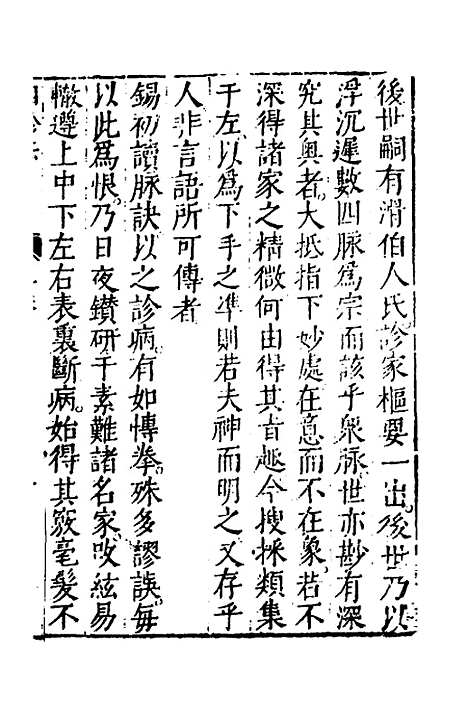 後世嗣有滑伯人氏診家樞要一出後世乃以
浮沉遲數四脉爲宗而該乎衆脉世亦尠有深
究其奥者大抵指下妙處在意而不在象若不
深得諸家之精微何由得其旨趣今搜採類集
于左以爲下手之準則若夫神而明之又存乎
人非言語所可傳者
錫初讀脉訣以之診病有如慱拳殊多謬誤每
以此爲恨乃日夜鑚研于素難諸名家改絃易
轍遵上中下左右表裏斷病始得其竅毫髮不